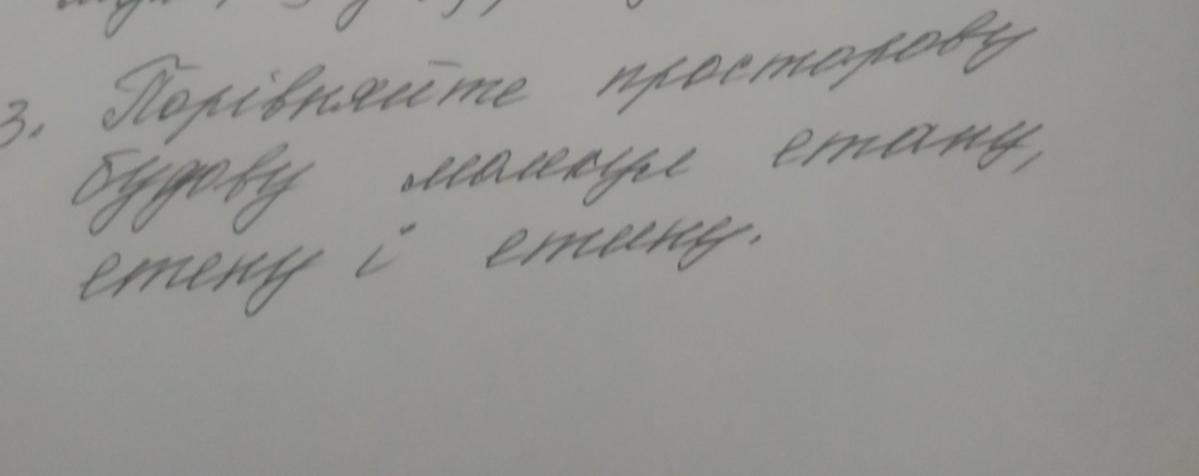 3. Порівняйте просторову
будову молекул етану,
етену і етину.